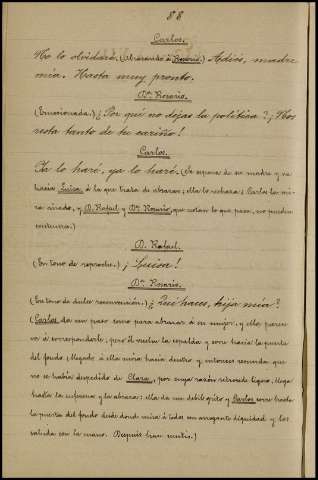 88
Carlos.
No lo olvidaré. (Abrazando a Rosario.) Adiós, madre
mía. Hasta muy pronto.
Dª Rosario.
(Emocionada.) ¡Por qué no dejas la política? ¡Nos
resta tanto de tu cariño!
Carlos.
Ya lo haré, ya lo haré. (Se separa de su madre y va
hacia Luisa, á la que trata de abrazar; ella lo rechaza; Carlos la mi-
ra airado, y D. Rafael y Dª Rosario, que notan lo que pasa, no pueden
contenerse.)
D. Rafael.
(En tono de reproche.) ¡Luisa!
Dª Rosario.
(En tono de dulce reconvención.) ¿Qué haces, hija mía?
(Carlos da un paso como para abrazar á su mujer, y ella parece
va á corresponderle, pero él vuelve la espalda y corre hacia la puerta
del fondo; llegado á ella mira hacia dentro y entonces recuerda que
no se había despedido de Clara, por cuya razón retrocede ligero, llega
hasta la enferma y la abraza: ella da un débil grito y Carlos corre hasta
la puerta del fondo desde donde mira á todos con arrogante dignidad y los
saluda con la mano. Después hace mutis.)